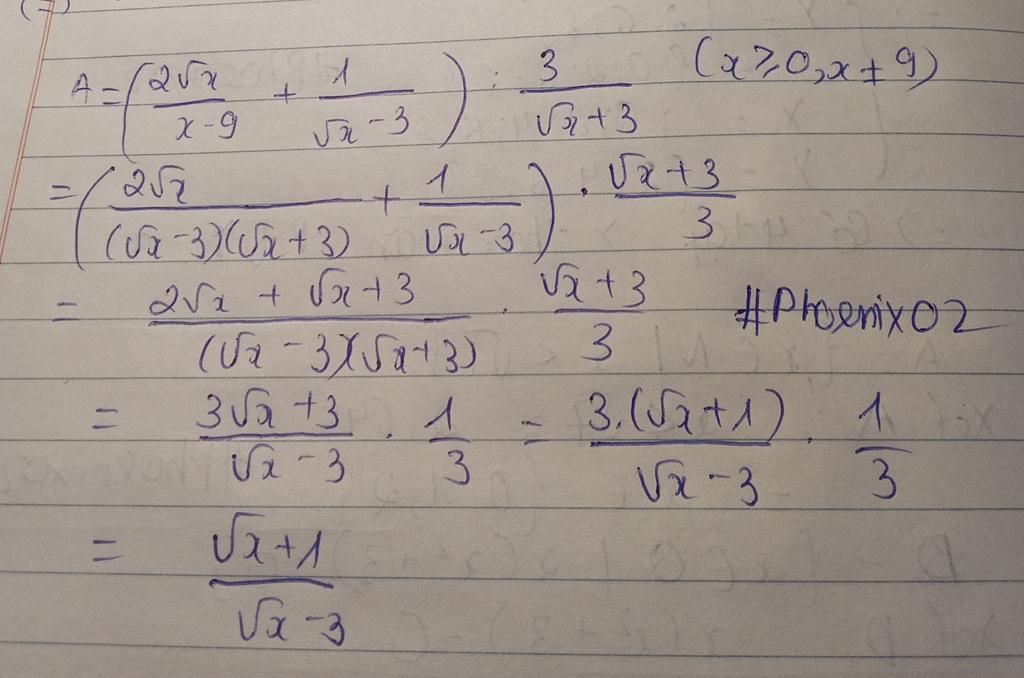 A = (2√x / (x - 9) + 1 / (√x - 3)) : 3 / (√x + 3) (x ≥ 0, x ≠ 9)
= (2√x / ((√x - 3)(√x + 3)) + 1 / (√x - 3)) . (√x + 3) / 3
= (2√x + √x + 3) / ((√x - 3)(√x + 3)) . (√x + 3) / 3 #Phoenix02
= (3√x + 3) / (√x - 3) . 1 / 3 = 3.(√x + 1) / (√x - 3) . 1 / 3
= (√x + 1) / (√x - 3)